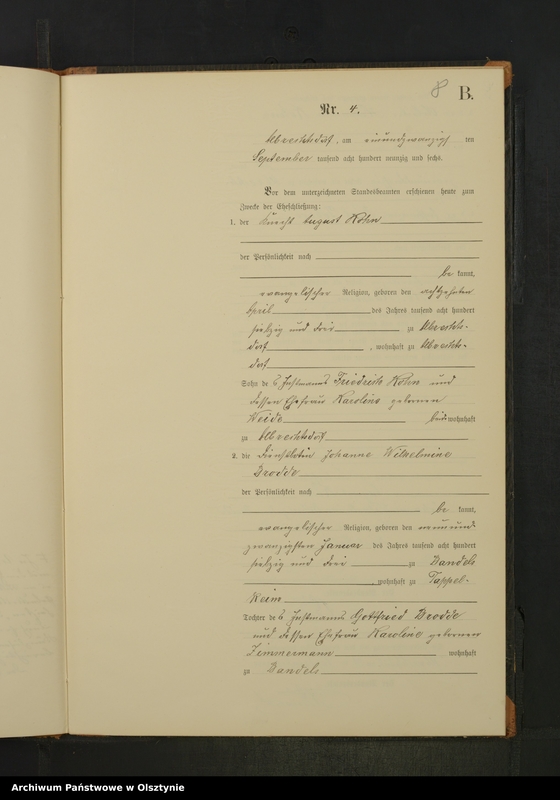 8 B.
Nr. 4.
Albrechtsdorf, am einundzwanzigsten
September tausend acht hundert neunzig und sechs.
Vor dem unterzeichneten Standesbeamten erschienen heute zum
Zwecke der Eheschließung:
1. der Knecht August Kohn
der Persönlichkeit nach
be kannt,
evangelischer Religion, geboren den achtzehnten
April des Jahres tausend acht hundert
siebzig und drei zu Albrechts-
dorf, wohnhaft zu Albrechts-
dorf
Sohn des Instmanns Friedrich Kohn und
dessen Ehefrau Karoline geborenen
Weide beide wohnhaft
zu Albrechtsdorf
2. die Dienstbotin Johanne Wilhelmine
Brodde
der Persönlichkeit nach
be kannt,
evangelischer Religion, geboren den neunund-
zwanzigsten Januar des Jahres tausend acht hundert
siebzig und drei zu Bandels
, wohnhaft zu Tappel-
keim
Tochter des Instmanns Gottfried Brodde
und dessen Ehefrau Karoline geborenen
Zimmermann wohnhaft
zu Bandels
Archiwum Państwowe w Olsztynie